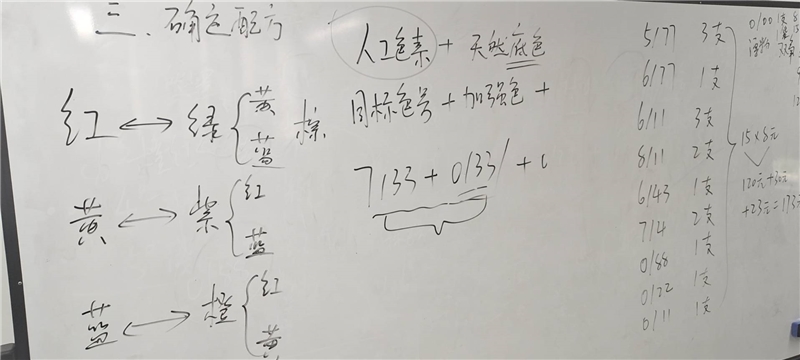 三、确定配方
红 ↔ 绿 { 黄 蓝 棕
黄 ↔ 紫 { 红 蓝
蓝 ↔ 橙 { 红 黄
人工色素 + 天然底色
目标色号 + 加强色 +
7/33 + 0/33 / +
5/77 3支
6/77 1支
6/11 3支
8/11 2支
6/43 1支
7/4 2支
0/88 1支
0/22 1支
0/11 1支
15×8元
120元+30元
+23元=173元
0/00 1支